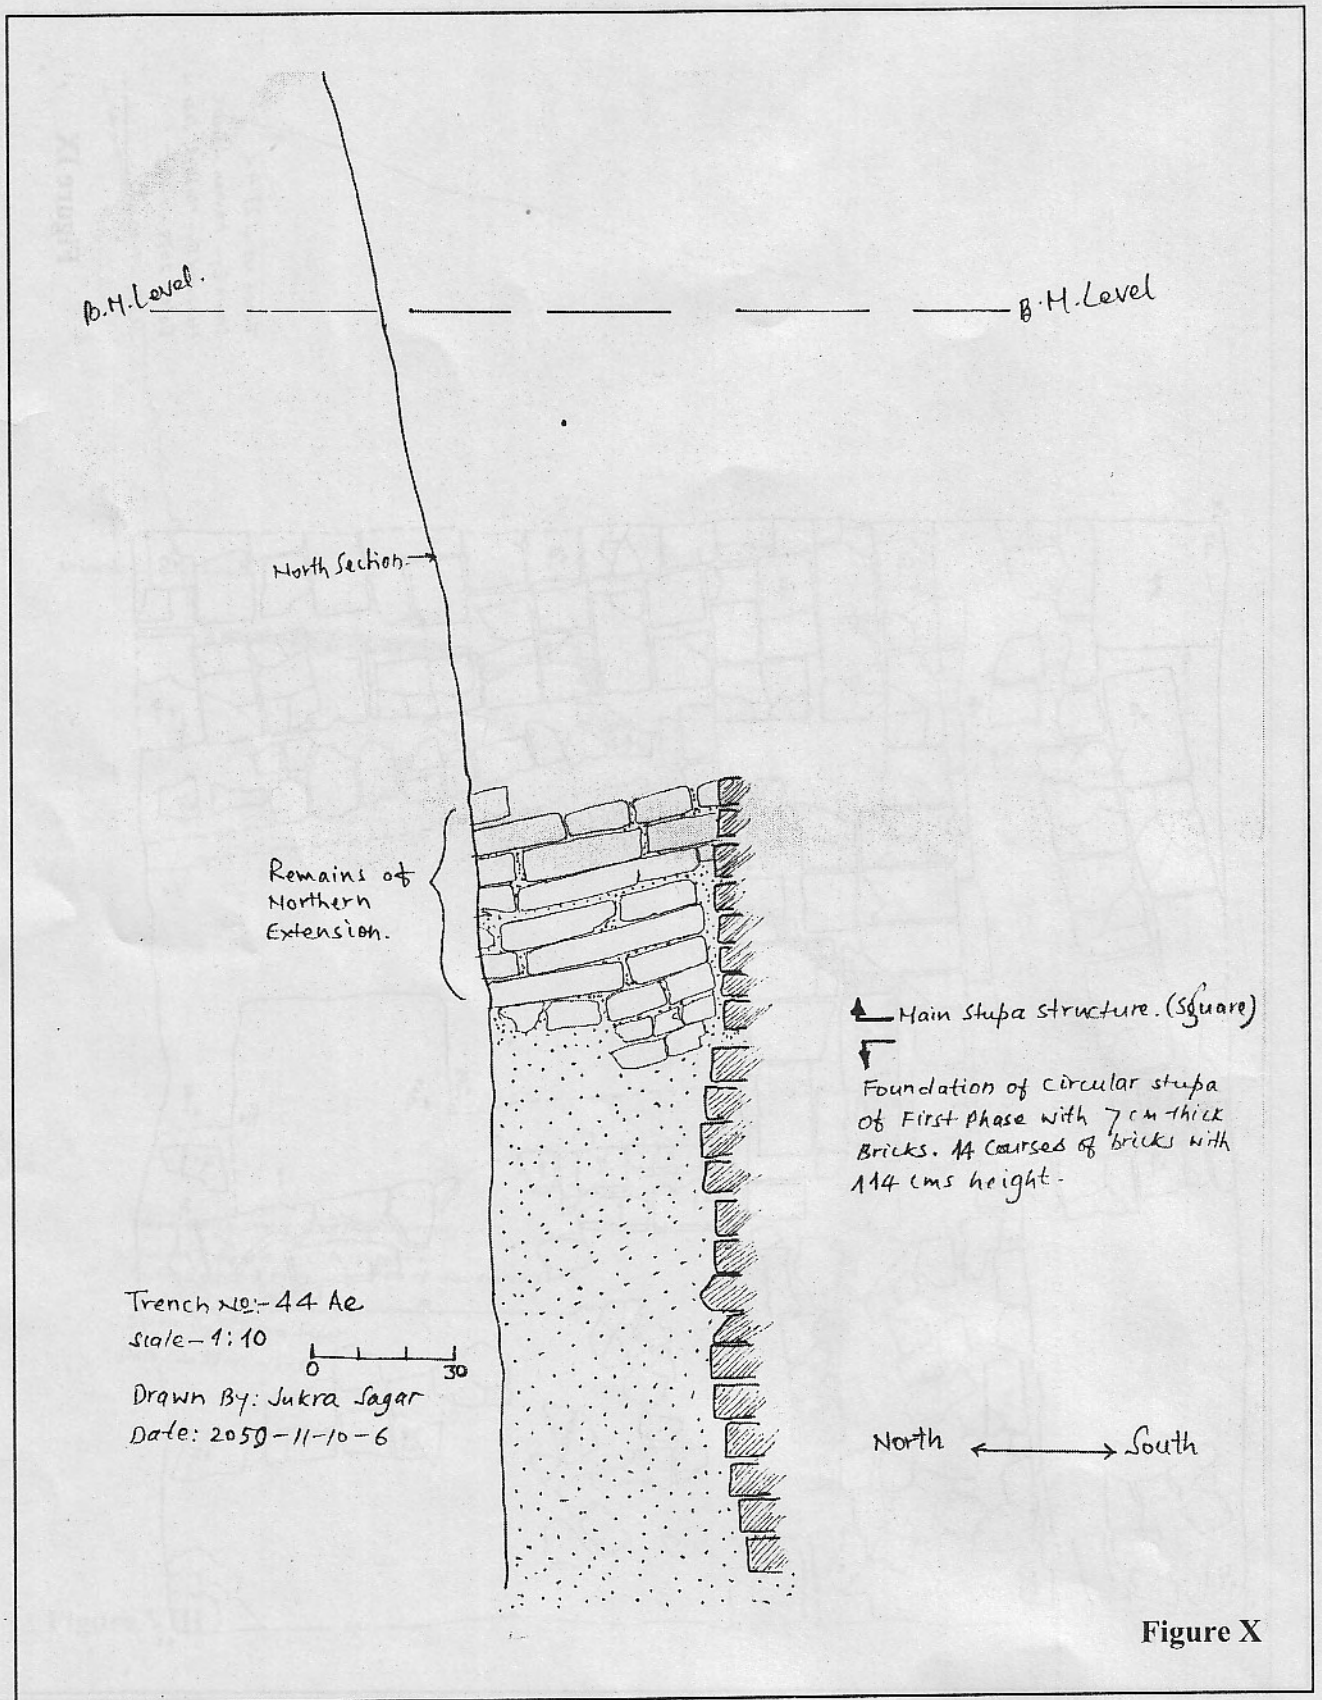 B.M.Level.
B.M.Level
North Section
Remains of
Northern
Extension.
Main stupa structure. (Square)
Foundation of Circular stupa
of First Phase with 7 cm thick
Bricks. 14 Courses of bricks with
114 cms height.
Trench No:- 44 Ae
Scale - 1:10
0 30
Drawn By: Sukra Sagar
Date: 2059-11-10-6
North South
Figure X